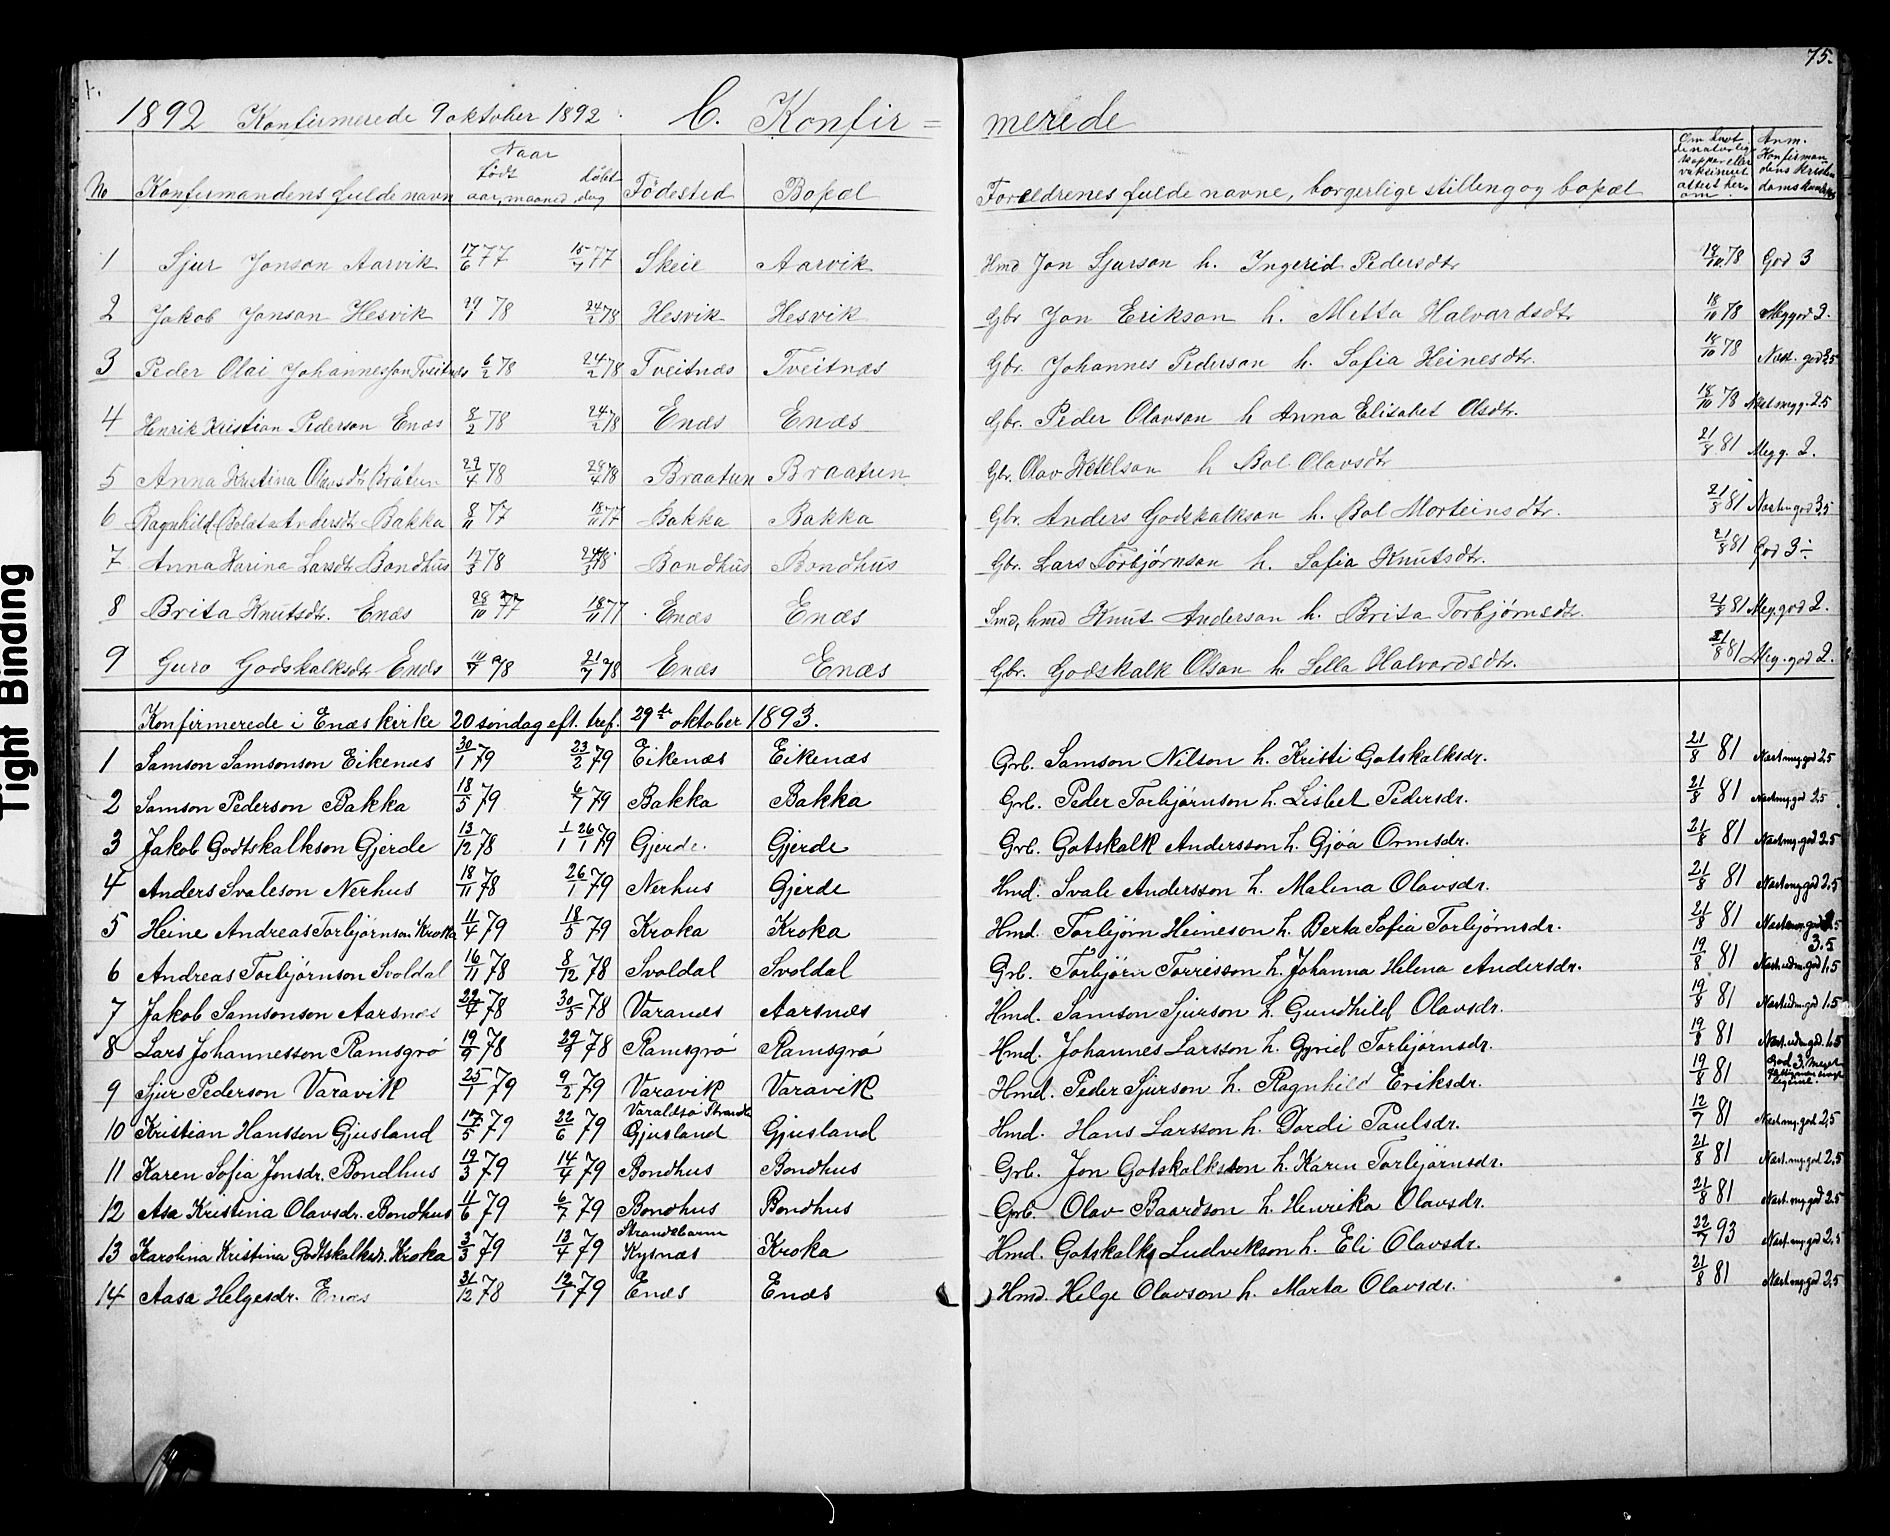 75.
1892 Konfirmerede 9 oktober 1892. C. Konfir = merede
No Konfirmandens fulde navn Naar født døbt aar, maaned, dag Fødested Bopæl Forældrenes fulde navne, borgerlige stilling og bopæl Om havt de naturlige kopper eller vaksineret attest her- om. Anm. Konfirman dens kristen domskundskab
1 Sjur Jonson Aarvik 17/6 77 15/7 77 Skeie Aarvik Hmd Jon Sjurson h. Ingerid Pedersdtr 18/10 78 God 3
2 Jakob Jonson Hesvik 29/1 78 24/2 78 Hesvik Hesvik Gbr Jon Erikson h. Metta Halvardsdtr 18/10 78 Meg god 2.
3 Peder Olai Johannesson Tveitnæs 6/2 78 24/2 78 Tveitnæs Tveitnæs Gbr. Johannes Pederson h. Sofia Heinesdtr. 18/10 78 Næst. god 2,5
4 Henrik Kristian Pederson Enæs 8/2 78 24/2 78 Enæs Enæs Gbr. Peder Olavson h Anna Elisabet Olsdtr. 18/10 78 Næst meg g. 2.5
5 Anna Kristina Olavsdtr Bråtun 22/4 78 28/4 78 Braatun Braatun Gbr. Olav Ketelson h Bol Olavsdtr 21/8 81 Meg g. 2.
6 Ragnhild Bolæta Andersdtr Bakka 8/11 77 18/11 77 Bakka Bakka Gbr. Anders Godskalkson h. Bol Morteinsdtr. 21/8 81 Næsten god 3,5
7 Anna Karina Larsdtr Bondhus 12/3 78 24/3 78 Bondhus Bondhus Gbr. Lars Torbjørnson h. Sofia Knutsdtr. 21/8 81 God 3÷
8 Brita Knutsdtr. Enæs 28/10 77 18/11 77 Enæs Enæs Smd, hmd Knut Anderson h. Brita Torbjørnsdtr. 21/8 81 Meg. god 2.
9 Guro Godskalksdtr Enæs 14/7 78 21/7 78 Enæs Enæs Gbr. Godskalk Olson h. Sella Halvardsdtr. 21/8 81 Meg. god 2.
Konfirmerede i Enæs kirke 20 søndag eft. tref. 29de oktober 1893.
1 Samson Samsonson Eikenæs 30/1 79 23/2 79 Eikenæs Eikenæs Grb. Samson Nilson h. Kristi Gotskalksdr. 21/8 81 Næst meg god 2,5
2 Samson Pederson Bakka 18/5 79 6/7 79 Bakka Bakka Grb. Peder Torbjørnson h. Lisbet Pedersdr. 21/8 81 Næst mg. god 2,5
3 Jakob Godtskalkson Gjerde 13/12 78 26/1 79 Gjerde. Gjerde Grb. Gotskalk Andersson h. Gjøa Ormsdr. 21/8 81 Næst mg. god 2,5
4 Anders Svaleson Nerhus 18/11 78 26/1 79 Nerhus Gjerde Hmd. Svale Andersson h. Malena Olavsdr. 21/8 81 Næst mg god 2,5
5 Heine Andreas Torbjørnson Kroka 11/4 79 18/5 79 Kroka Kroka Hmd. Torbjørn Heineson h. Berta Sofia Torbjørnsdr. 21/8 81 3,5
6 Andreas Torbjørnson Svoldal 16/11 78 8/12 78 Svoldal Svoldal Grb. Torbjørn Torrisson h. Johanna Helena Andersdr. 19/8 81 Næst. udm. god 1,5
7 Jakob Samsonson Aarsnæs 22/4 78 30/5 78 Varanes Aarsnæs Hmd. Samson Sjurson h. Gundhild Olavsdr. 19/8 81 Næst udm. god 1,5
8 Lars Johannesson Ramsgrø 19/9 78 29/9 78 Ramsgrø Ramsgrø Hmd. Johannes Larsson h. Gyrid Torbjørnsdr. 19/8 81 Næst. udm god. 1,5
9 Sjur Pederson Varavik 25/1 79 9/2 79 Varavik Varavik Hmd. Peder Sjurson h. Ragnhild Eriksdr. 19/8 81 God 3. meget
10 Kristian Hansson Gjusland 17/5 79 22/6 79 Varaldsø Strandb. Gjusland Gjusland Hmd. Hans Larsson h. Dordi Paulsdr. 12/7 81 Næst mg. god 2,5
11 Karen Sofia Jonsdr. Bondhus 19/3 79 14/4 79 Bondhus Bondhus Grb. Jon Gotskalkson h. Karen Torbjørnsdr. 21/8 81 Næst. mg. god 2,5
12 Asa Kristina Olavsdr. Bondhus 11/6 79 6/7 79 Bondhus Bondhus Grb. Olav Baardson h. Henrika Olavsdr. 21/8 81 Næst. mg god 2.5
13 Karolina Kristina Godtskalksdr. Kroka 3/3 79 13/4 79 Strandebarm Kysnæs Kroka Hmd. Gotskalk Ludvikson h. Eli Olavsdr. 22/7 93 Næst. mg. god 2,5
14 Aasa Helgesdr. Enæs 31/12 78 12/1 79 Enæs Enæs Hmd. Helge Olavson h. Marta Olavsdr. 21/8 81 Næst mg. god 2,5
Tight Binding